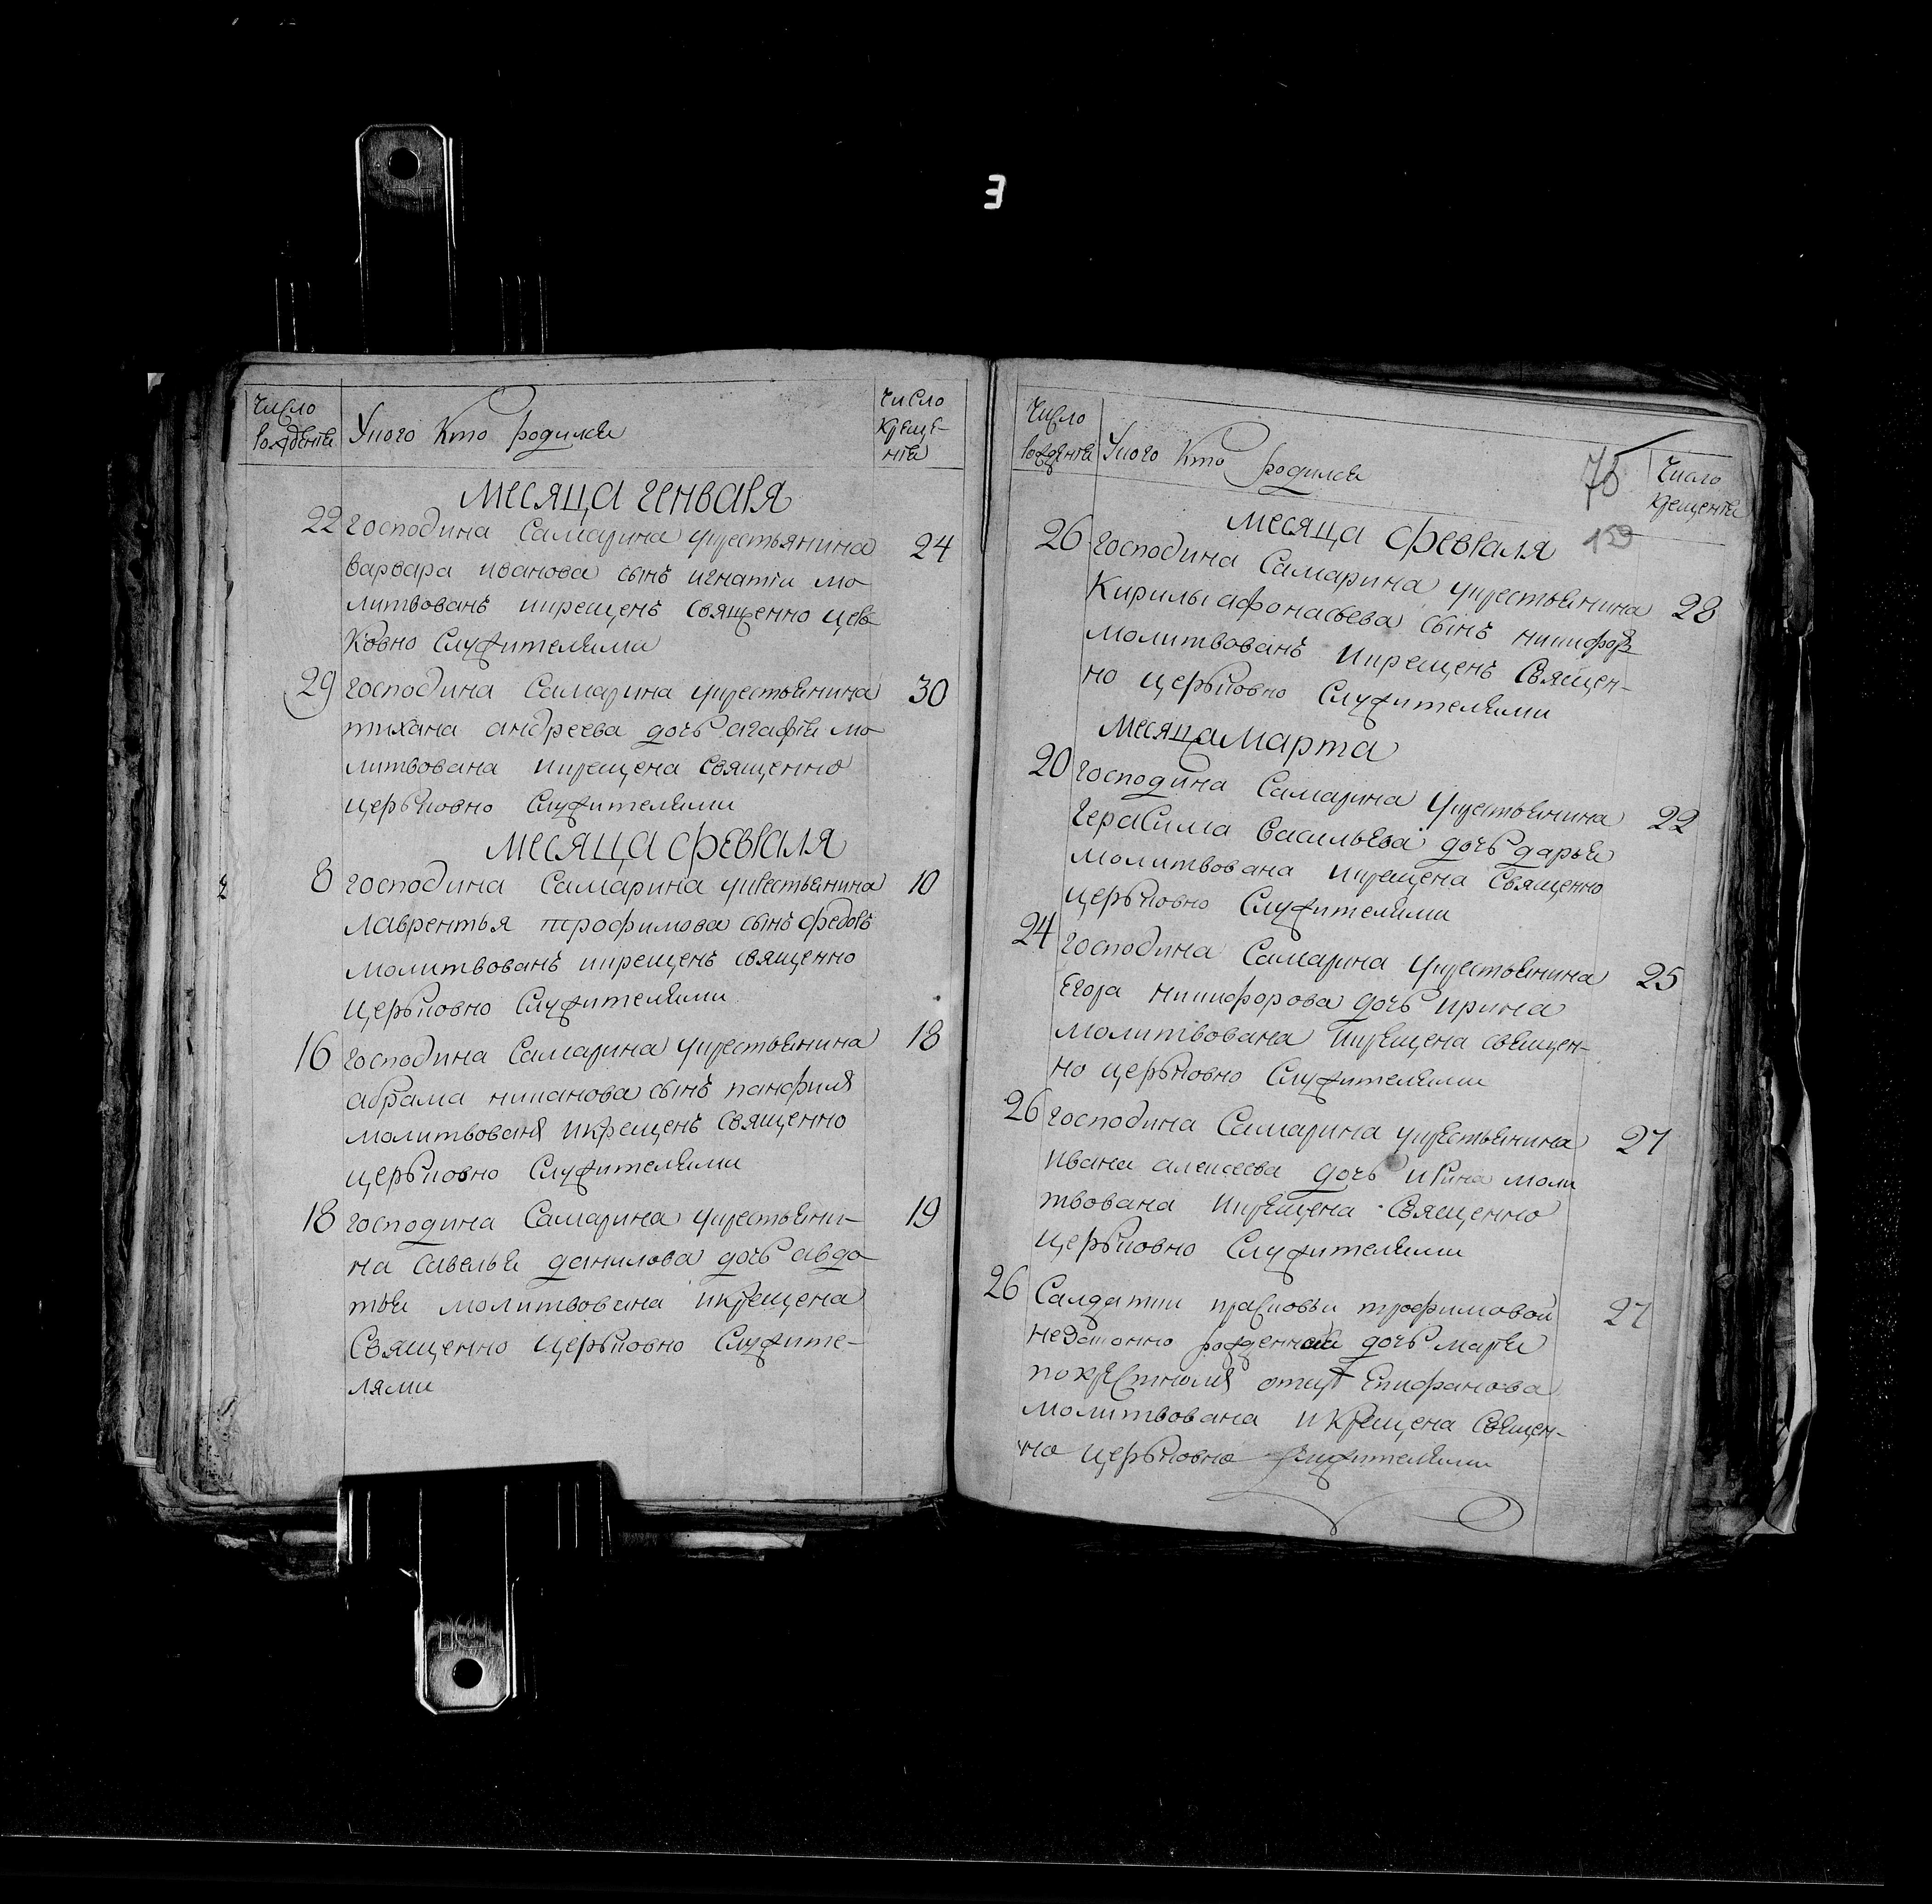 3
Число
рожденiя
У кого кто родился
Число
креще-
нiя
месяца генваря
22 господина Самарина у крестьянина 24
варвара иванова сынъ игнатiи мо
литвованъ икрещенъ священно церь
ковно служителями
29 господина Самарина у крестьянина 30
тихана андреева дочь агафiя мо
литвована икрещена священно
церьковно служителями
месяца февраля
8 господина Самарина у крестьянина 10
лаврентья трофимова сынъ федоръ
молитвованъ икрещенъ священно
церьковно служителями
16 господина Самарина у крестьянина 18
абрама никанова сынъ панфилъ
молитвованъ икрещенъ священно
церьковно служителями
18 господина Самарина у крестьяни- 19
на савелья данилова дочь авдо
тья молитвована икрещена
Священно церьковно служите-
лями
Число
рожденiя
У кого кто родился
75
Число
крещенiя
150
месяца февраля
26 господина Самарина у крестьянина 28
Кирилы афонасьева сынъ никифоръ
молитвованъ икрещенъ священ-
но церьковно служителями
месяца марта
20 господина Самарина у крестьянина 22
герасима васильева дочь дарья
молитвована икрещена священно
церьковно служителями
24 господина Самарина у крестьянина 25
Егора никифорова дочь ирина
молитвована икрещена священ-
но церьковно служителями
26 господина Самарина у крестьянина 27
ивана алексеева дочь ирина моли
твована икрещена священно
церьковно служителями
26 Салдатки прасковьи трофимовой 27
незаконно рожденная дочь марья
покрестномъ отцу Епифанова
молитвована икрещена священ-
но церьковно служителями